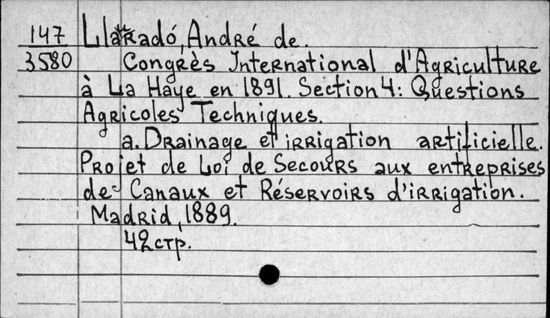 147 Llaradó, André de.
3580 Congrès International d'Agriculture
à La Haye en 1891. Section 4: Questions
Agricoles Techniques.
a. Drainage et irrigation artificielle.
Projet de Loi de Secours aux entreprises
de Canaux et Réservoirs d'irrigation.
Madrid, 1889.
42 стр.